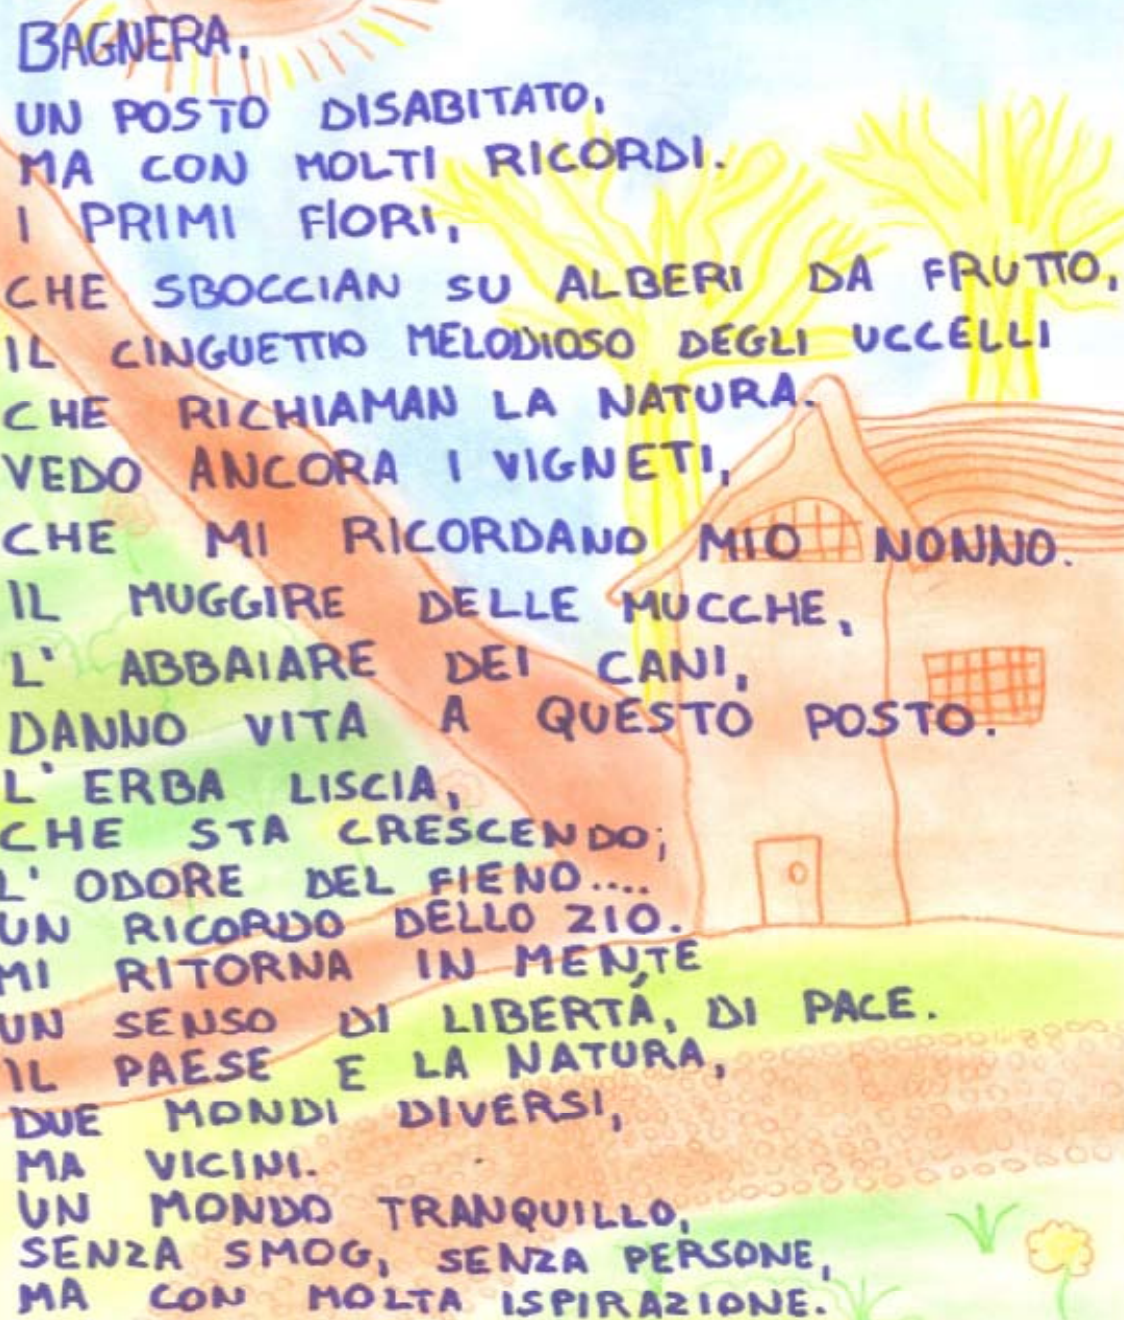 BAGNERA,
UN POSTO DISABITATO,
MA CON MOLTI RICORDI.
I PRIMI FIORI,
CHE SBOCCIAN SU ALBERI DA FRUTTO,
IL CINGUETTIO MELODIOSO DEGLI UCCELLI
CHE RICHIAMAN LA NATURA.
VEDO ANCORA I VIGNETI,
CHE MI RICORDANO MIO NONNO.
IL MUGGIRE DELLE MUCCHE,
L' ABBAIARE DEI CANI,
DANNO VITA A QUESTO POSTO.
L' ERBA LISCIA,
CHE STA CRESCENDO;
L' ODORE DEL FIENO....
UN RICORDO DELLO ZIO.
MI RITORNA IN MENTE
UN SENSO DI LIBERTÁ, DI PACE.
IL PAESE E LA NATURA,
DUE MONDI DIVERSI,
MA VICINI.
UN MONDO TRANQUILLO,
SENZA SMOG, SENZA PERSONE,
MA CON MOLTA ISPIRAZIONE.